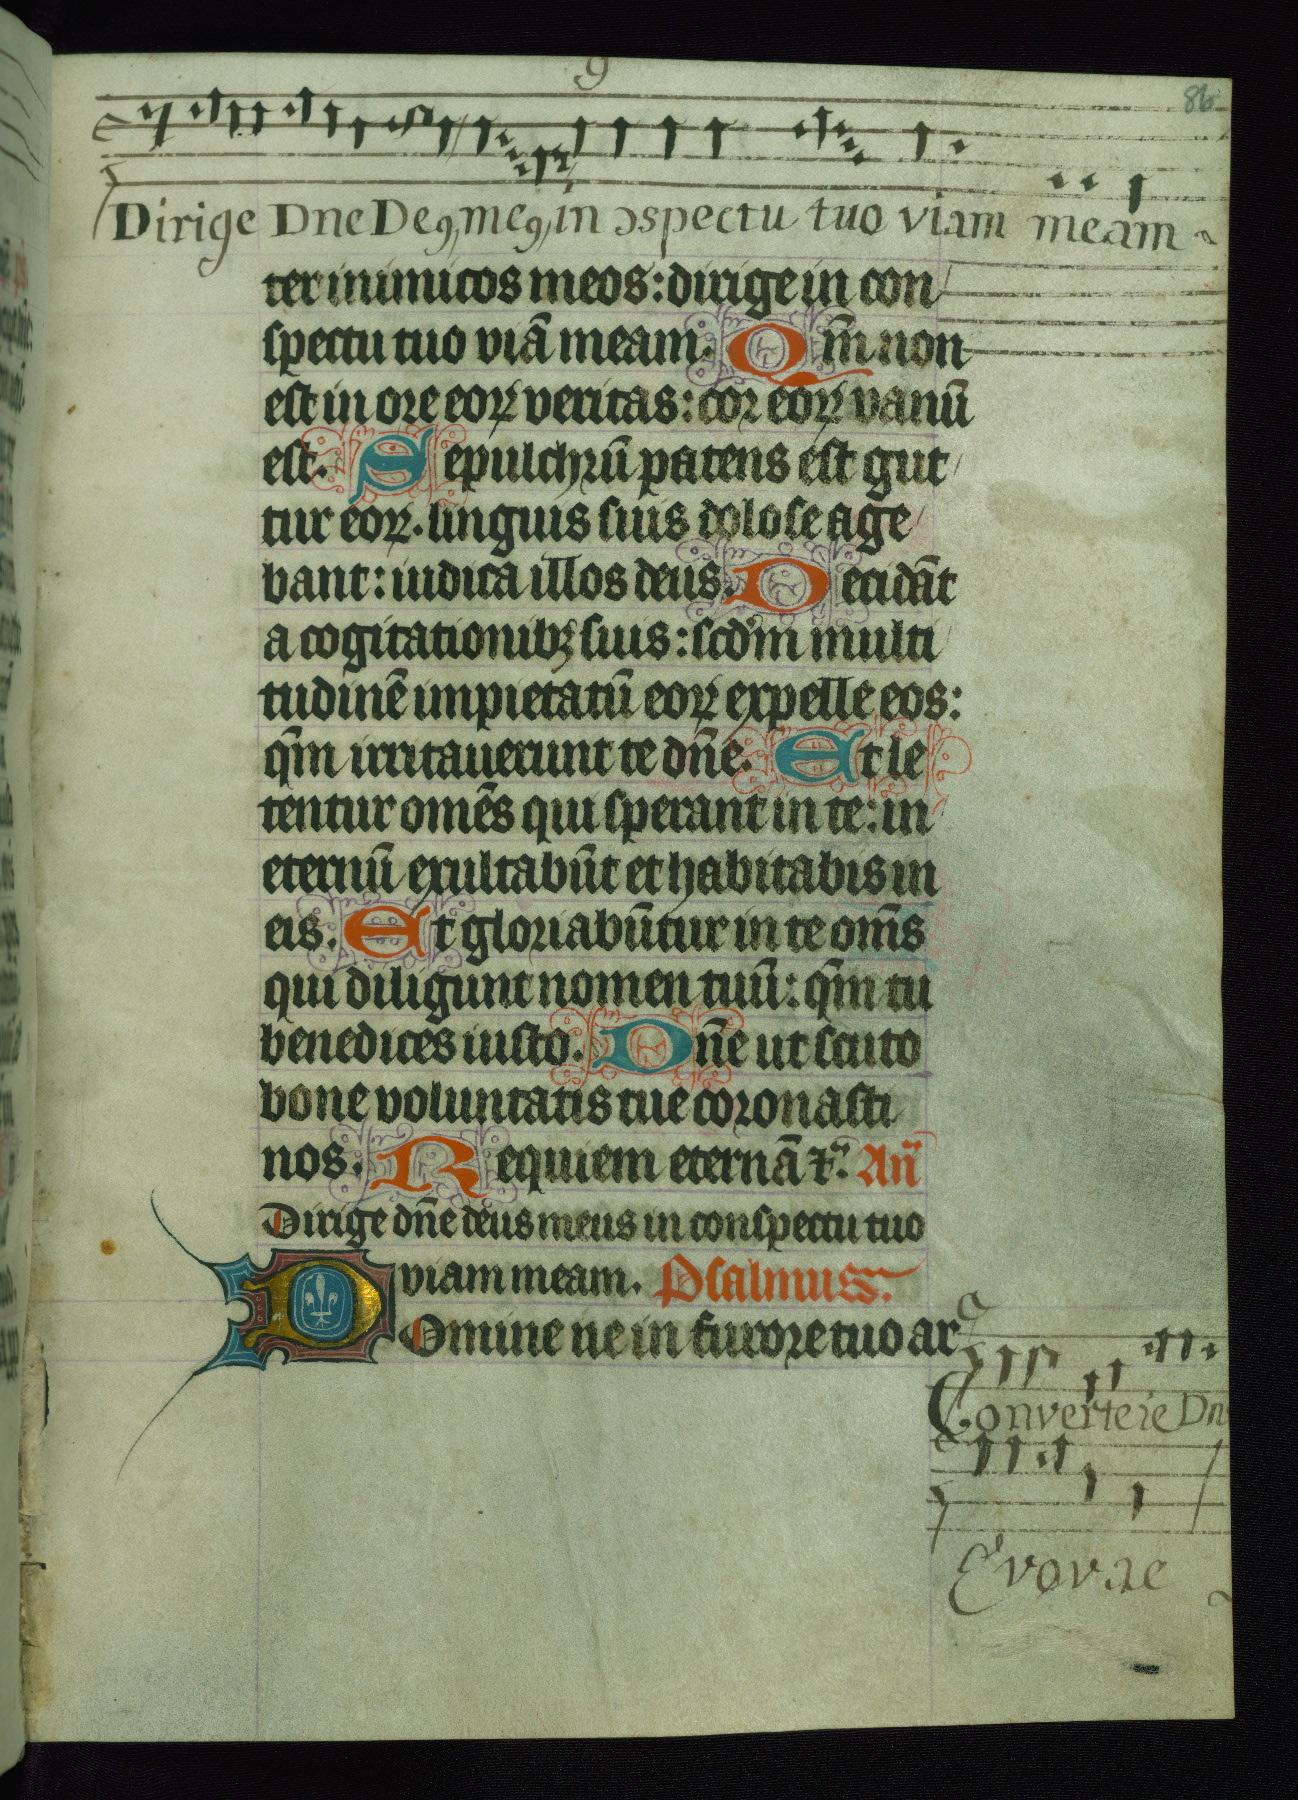 86
Dirige Dne Deꝰ meꝰ in ɔspectu tuo viam meam
ter inimicos meos: dirige in con
spectu tuo viā meam. Qm̄ non
est in ore eoꝝ veritas: cor eoꝝ vanū
est. Sepulchrū patens est gut
tur eoꝝ. linguis suis dolose age
bant: iudica illos deus. Decidāt
a cogitationibꝫ suis: scd̄m multi
tudinē impietatū eoꝝ expelle eos:
qm̄ irritauerunt te dn̄e. Et le
tentur omēs qui sperant in te: in
eternū exultabūt et habitabis in
eis. Et gloriabūtur in te om̄s
qui diligunt nomen tuū: qm̄ tu
benedices iusto. Dn̄e ut scuto
bone voluntatis tue coronasti
nos. Requiem eternā ⁊c̄. An̄
Dirige dn̄e deus meus in conspectu tuo
viam meam. Psalmus.
Domine ne in furore tuo ar
Convertere Dn
Evovae